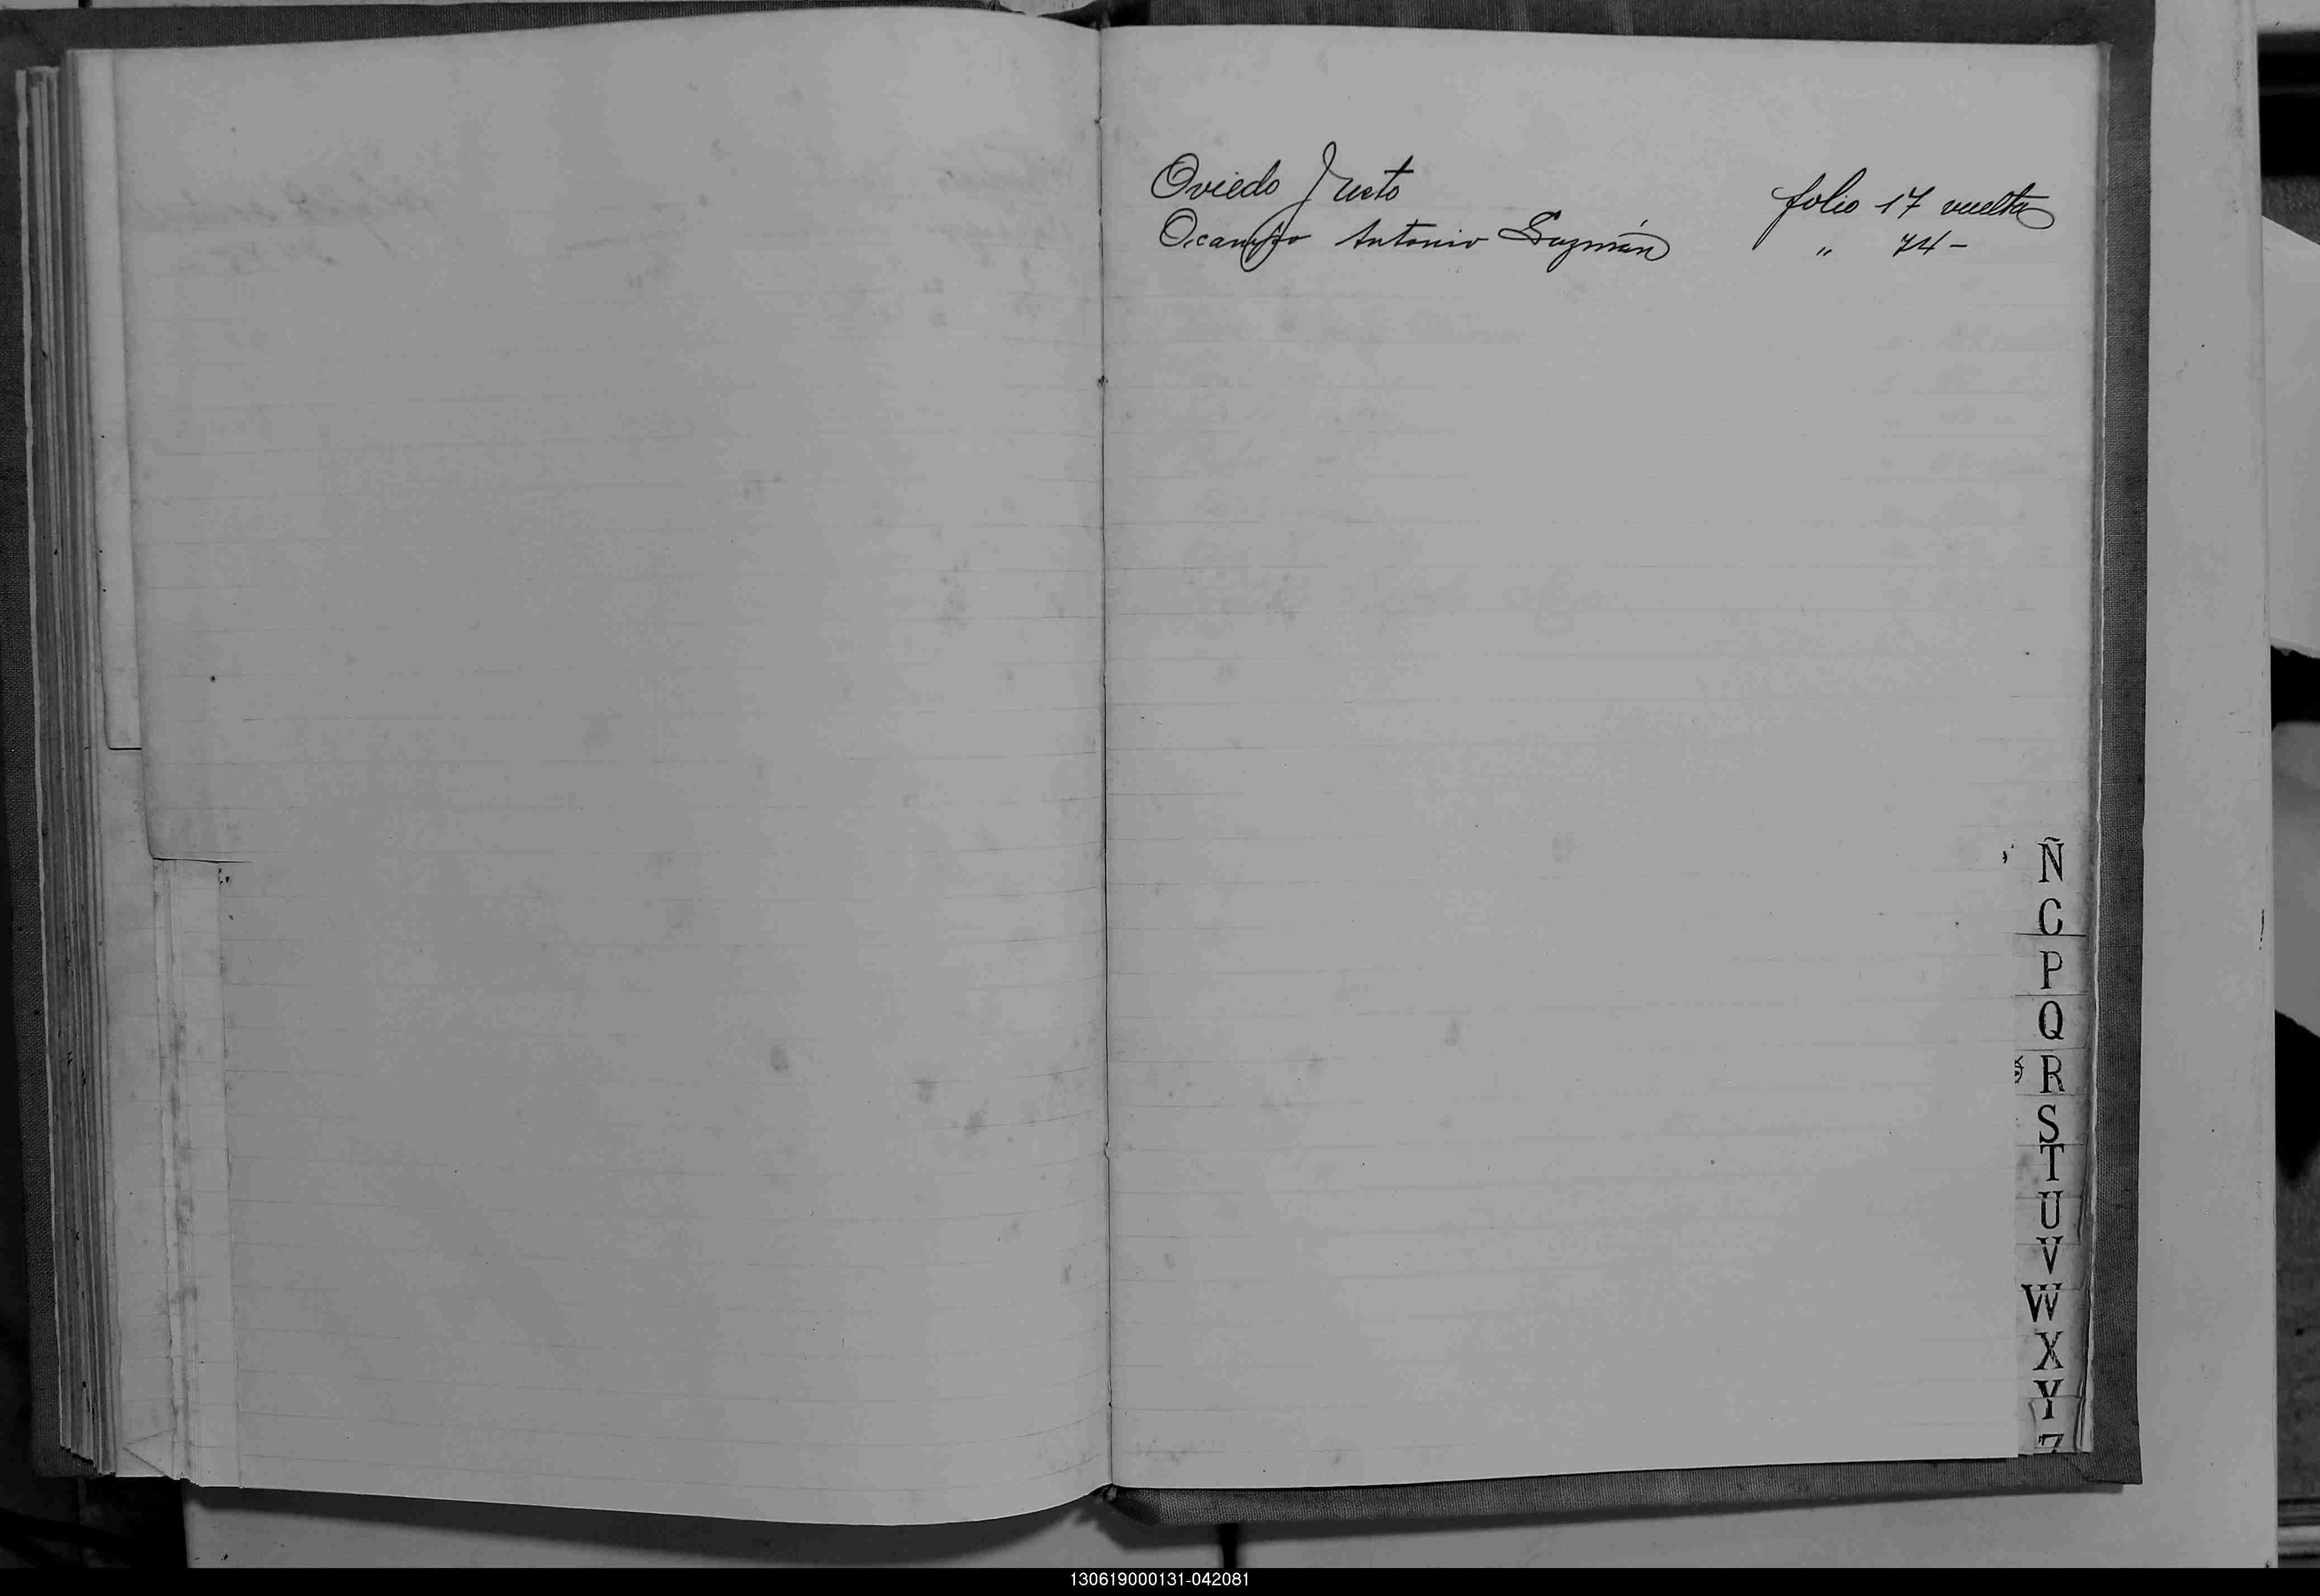 Oviedo Justo folio 17 vuelta
Ocampo Antonio Guzmán " 74-
Ñ
O
P
Q
R
S
T
U
V
W
X
Y
Z
130619000131-042081